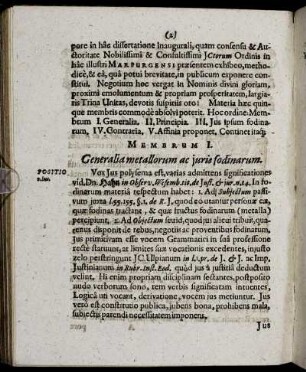 (2)
pore in hâc dissertatione inaugurali, quam consensu & Au-
ctoritate Nobilissimi & Consultissimi JCtorum Ordinis in
hâc illustri MARPURGENSI præsentem exhibeo, methodi-
cè, & eâ, quâ potui brevitate, in publicum exponere con-
stitui. Negotium hoc vergat in Nominis divini gloriam,
proximi emolumentum & propriam prosperitatem, largia-
ris Trina Unitas, devotis suspiriis oro! Materia hæc quin-
que membris commodè absolvi poterit. Horce ordine Mem-
brum I. Generalia, II. Principia. III. Jus ipsum fodina-
rum, IV. Contraria, V. Affinia proponet. Continet itaq;
MEMBRUM I.
Generalia metallorum ac juris fodinarum.
POSITIO
Vox Jus polysema est, varias admittens significationes
vid. Dn. Hahn in Observ. Wesemb. tit. de Just. & jur. n. 4. In fodi-
narum materiâ respectum habet: 1. Ad Subjectum passi-
vum juxta l. 195. §. 2. de V. S. quod eo utantur personæ ex-
que fodinas tractant, & quæ fructus fodinarum (metalla)
percipiunt. 2. Ad Objectum statid, quod jus alicui tribuit, qua-
tenus disponit de rebus, negotiis ac proventibus fodinarum.
Jus primitivam esse vocem Grammatici in sua professione
rectè statuunt, at limites suæ vocationis excedentes, injusto
zelo perstringunt JC. Ulpianum in l. 1. pr. de J. & J. ac Imp.
Justinianum in Rubr. Inst. Eod. quod jus à justitiâ deductum
velint. Hi enim propriam disciplinam sectantes, postposito
nudo verborum sono, rem verbis significatam intuentes,
Logicâ uti vocant, derivatione, vocem jus metiuntur. Jus
verò est constitutio publica, jubens bona, prohibens mala,
subjectis parendi necessitatem imponens,
Jus